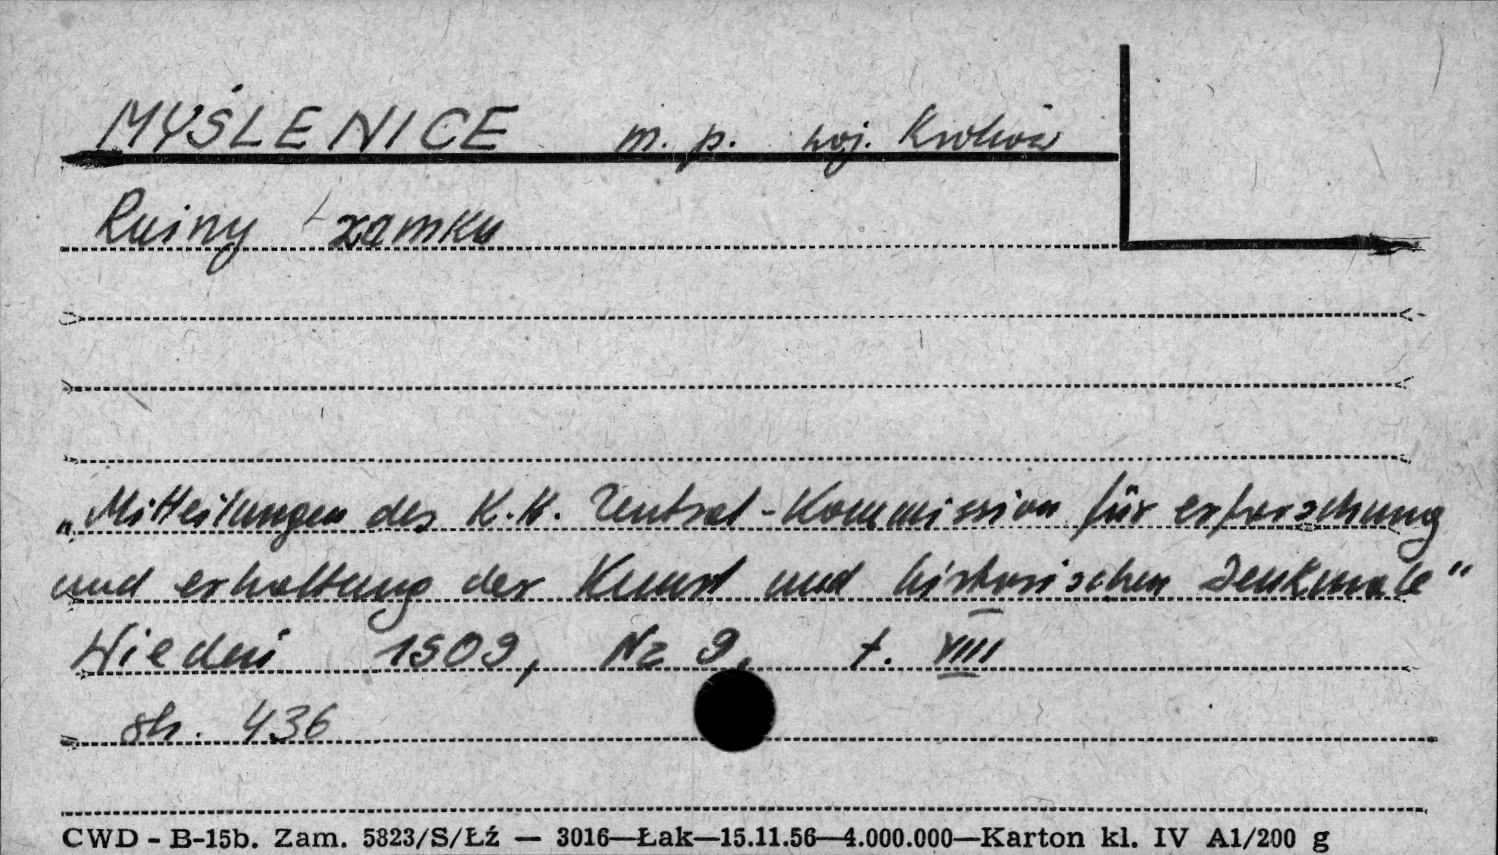 MYŚLENICE m. p. woj. Kraków
Ruiny zamku
„Mitteilungen des K.K. Zentral-Kommission für erforschung
und erhaltung der Kunst und historischen Denkmale"
Wiedeń 1909, Nr 9, t. VIII
str. 436
CWD - B-15b. Zam. 5823/S/Łź — 3016—Łak—15.11.56—4.000.000—Karton kl. IV A1/200 g